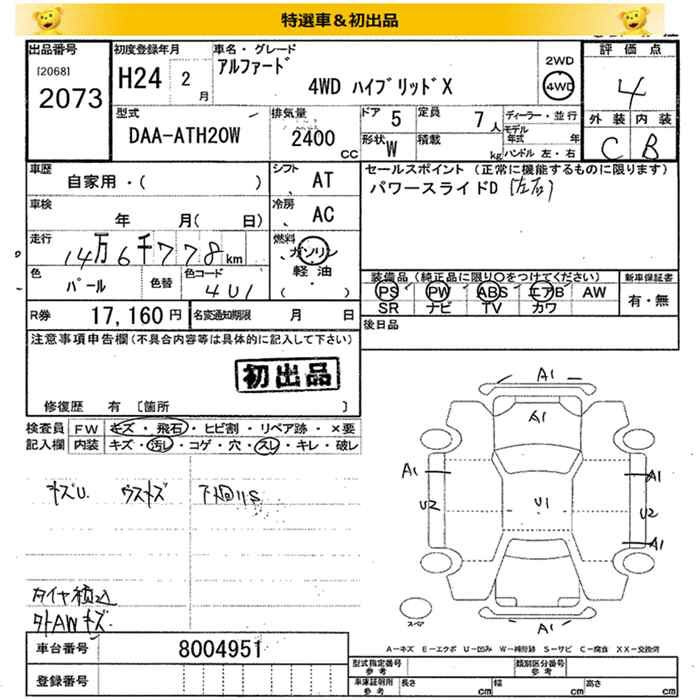 特選車＆初出品
出品番号 初度登録年月 車名・グレード 評価点
[2068] アルファード 2WD
2073 H24 2月 4WD ハイブリッドX 4WD 4
型式 排気量 ドア 5 定員 7人 ディーラー・並行 外装 内装
DAA-ATH20W 2400cc 形状 W 積載 kg モデル年式 年 C B
ハンドル 左・右
車歴 シフト セールスポイント (正常に機能するものに限ります)
自家用・( ) AT パワースライドD (左右)
車検 冷房
年 月( 日) AC
走行 燃料
14万6千778km ガソリン
色 色替 色コード 軽油 装備品 (純正品に限り〇をつけてください) 新車保証書
パール 4U1 ( ・ ) PS PW ABS エアB AW 有・無
R券 17,160円 名変通知期限 月 日 SR ナビ TV カワ
注意事項申告欄(不具合内容等は具体的に記入して下さい) 後日品
初出品
修復歴 有 [箇所 ]
検査員 FW キズ・飛石・ヒビ割・リペア跡・×要
記入欄 内装 キズ・汚レ・コゲ・穴・スレ・キレ・破レ
キズU ウスキズ 下回りS
タイヤ積込
外AWキズ
A1
A1
A1 A1
U2 U1 U2
A1
スペア A1
A－キズ E－エクボ U－凹み W－補修跡 S－サビ C－腐食 XX－交換済
車台番号 8004951 型式指定番号 参考 類別区分番号 参考
登録番号 車庫証明用 参考 長さ cm 幅 cm 高さ cm